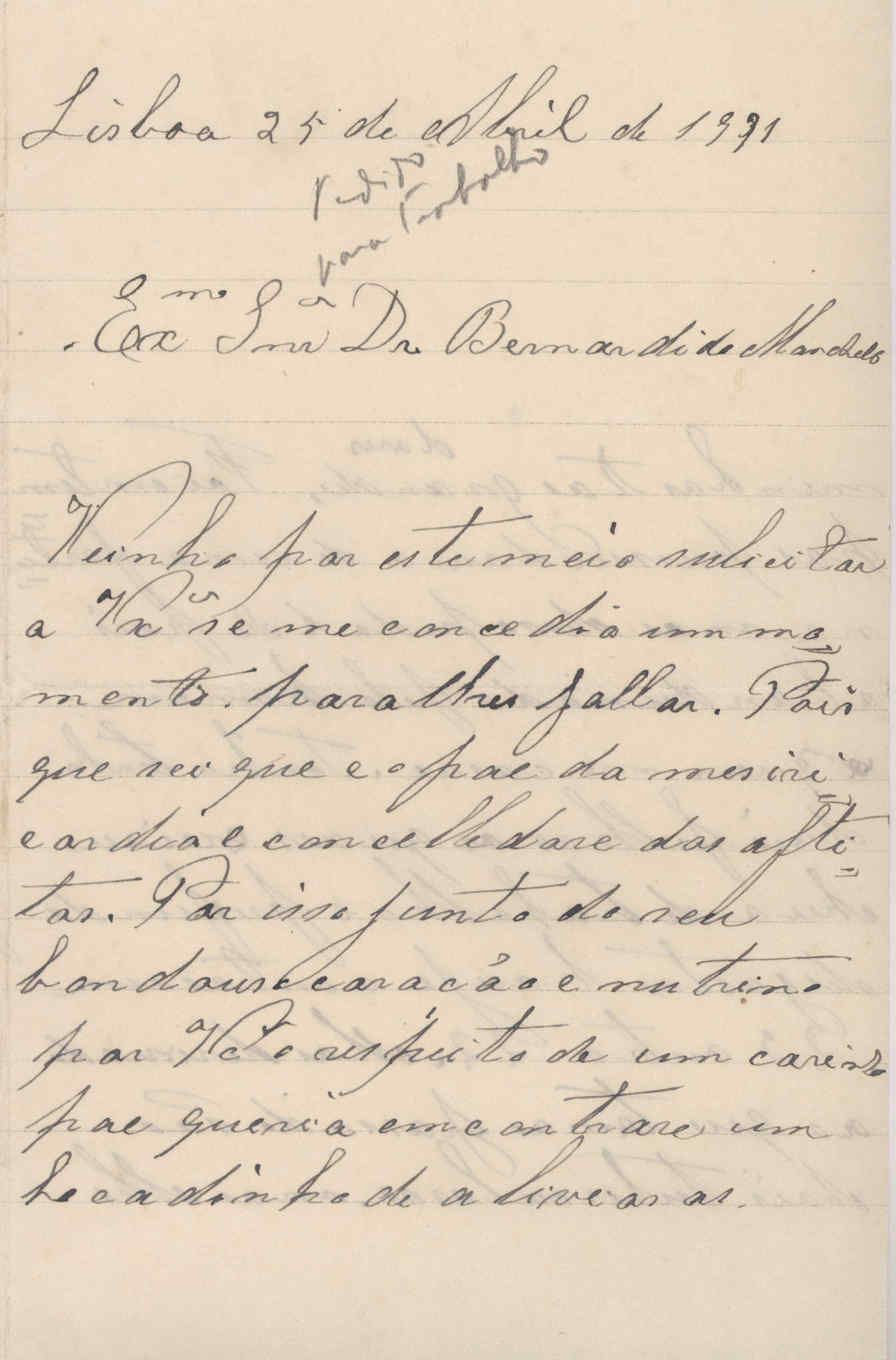 Lisboa 25 de Abril de 1921
Pedido
para Trabalho
Exmo Snr Dr Bernardido Machado
Veinho por este meio sulicitar
a Vxa se me concedia um mo
mento. para lhes fallar. Pois
que sei que e o pae da mesiri
cordia e concelledore dos afli-
tos. Por isso junto do seu
bondouso coração e nutrino
por Vcª o respeito de um carinho
pae queria emcontrare um
bocadinho de aliveio as as.